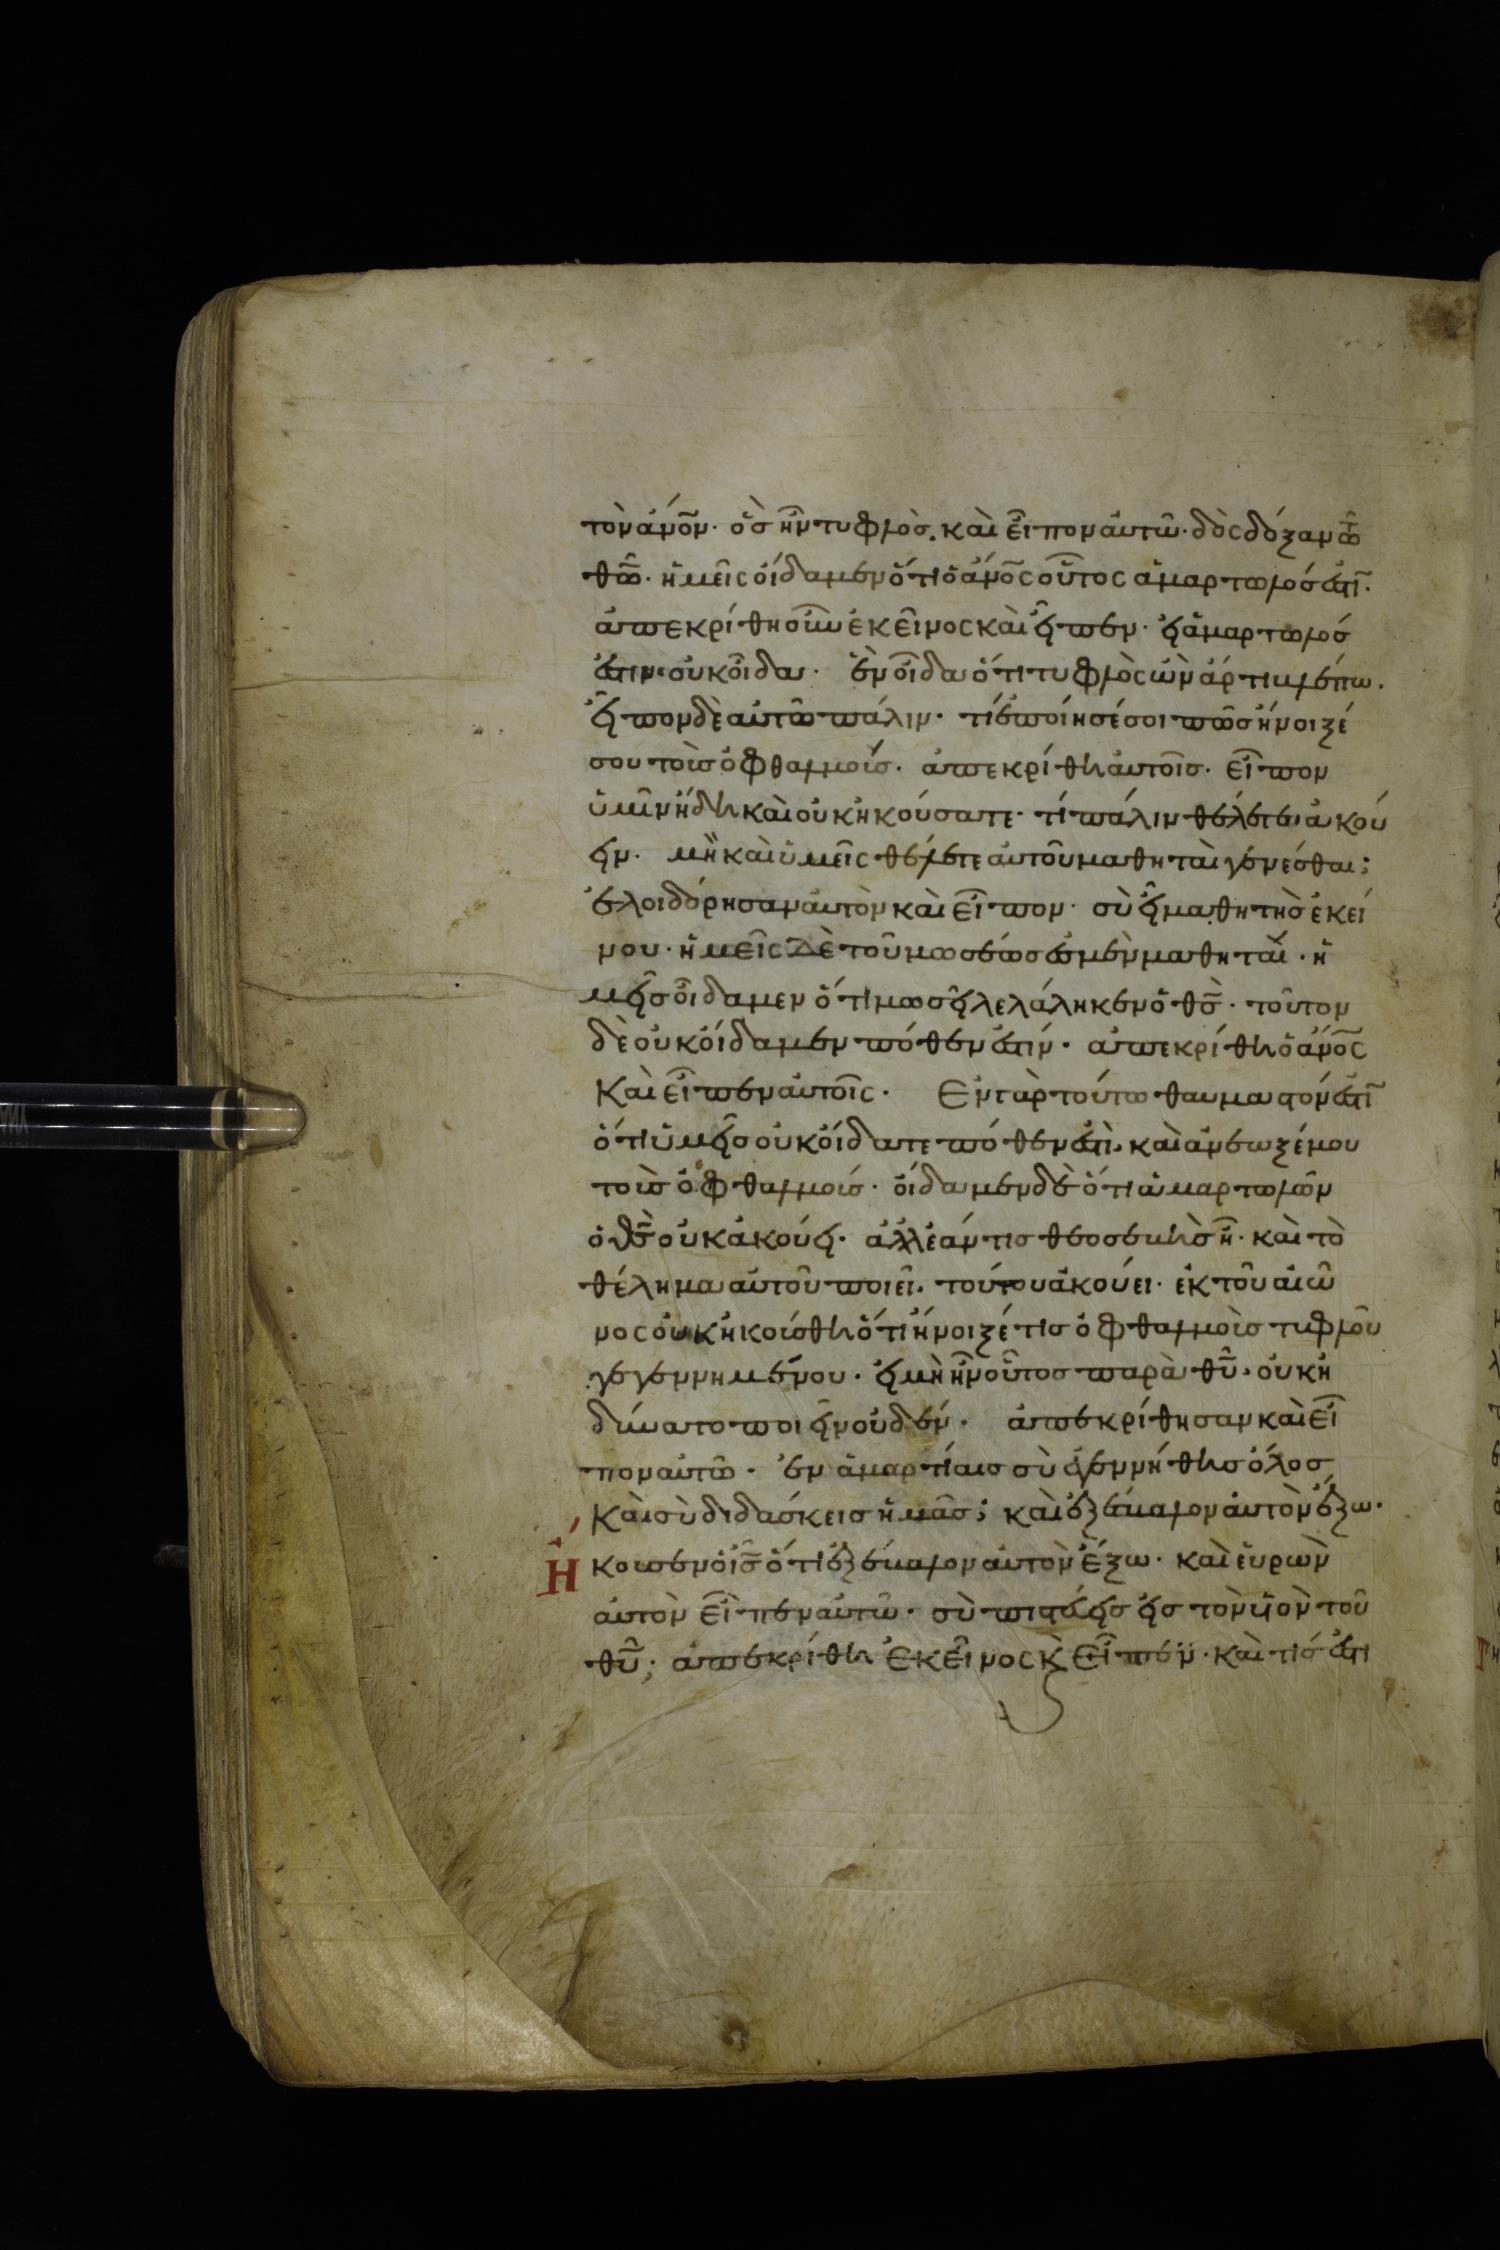 τὸν ἀνο̅ν· ὃς ἦν τυφλὸς. καὶ εἶπον αὐτῶ· δὸς δόξαν τῶ
θω̅· ἡμεῖς οἴδαμεν ὅτι ὁ ἀνο̅ς οὗτος ἁμαρτωλός ἐστι̅·
ἀπεκρίθη οὖν ἐκεῖνος καὶ εἶπεν· εἰ ἁμαρτωλός
ἐστιν· οὐκ οἶδα· ἓν οἶδα ὅτι τυφλὸς ὢν ἄρτι βλέπω.
εἶπον δὲ αὐτῶ πάλιν· τί ἐποίησέ σοι πῶς ἤνοιξέ
σου τοὺς ὀφθαλμούς· ἀπεκρίθη αὐτοῖς· εἶπον
ὑμῖν ἤδη καὶ οὐκ ἠκούσατε· τί πάλιν θέλετε ἀκού
ειν· μὴ καὶ ὑμεῖς θέλετε αὐτοῦ μαθηταὶ γενέσθαι;
ἐλοιδόρησαν αὐτὸν καὶ εἶπον· σὺ εἶ μαθητὴς ἐκεί
νου· ἡμεῖς δὲ τοῦ μωσέως ἐσμὲν μαθηταὶ· ἡ
μεῖς οἴδαμεν ὅτι μωσεῖ λελάληκεν ὁ θς̅· τοῦτον
δὲ οὐκ οἴδαμεν πόθεν ἐστίν· ἀπεκρίθη ὁ ἀνο̅ς
καὶ εἶπεν αὐτοῖς· Ἐν γὰρ τούτω θαυμαστόν ἐστι̅
ὅτι ὑμεῖς οὐκ οἴδατε πόθεν ἐστὶ· καὶ ἀνέωξέ μου
τοὺς ὀφθαλμούς· οἴδαμεν δὲ ὅτι ἁμαρτωλῶν
ὁ θς̅ οὐκ ἀκούει· ἀλλ' ἐάν τις θεοσεβὴς ἦ· καὶ τὸ
θέλημα αὐτοῦ ποιεῖ· τούτου ἀκούει· ἐκ τοῦ αἰῶ
νος οὐκ ἠκούσθη ὅτι ἤνοιξέ τις ὀφθαλμοὺς τυφλοῦ
γεγεννημένου· εἰ μὴ ἦν οὗτος παρὰ θυ̅· οὐκ ἠ
δύνατο ποιεῖν οὐδέν· ἀπεκρίθησαν καὶ εἶ
πον αὐτῶ· ἐν ἁμαρτίαις σὺ ἐγεννήθης ὅλος
καὶ σὺ διδάσκεις ἡμᾶς; καὶ ἐξέβαλον αὐτὸν ἔξω·
Ἤκουσεν ὁ ις̅ ὅτι ἐξέβαλον αὐτὸν ἔξω· καὶ εὑρὼν
αὐτὸν εἶπεν αὐτῶ· σὺ πιστεύεις εἰς τὸν υἱὸν τοῦ
θυ̅; ἀπεκρίθη ἐκεῖνος κ̀ εἶπεν· καὶ τίς ἐστι